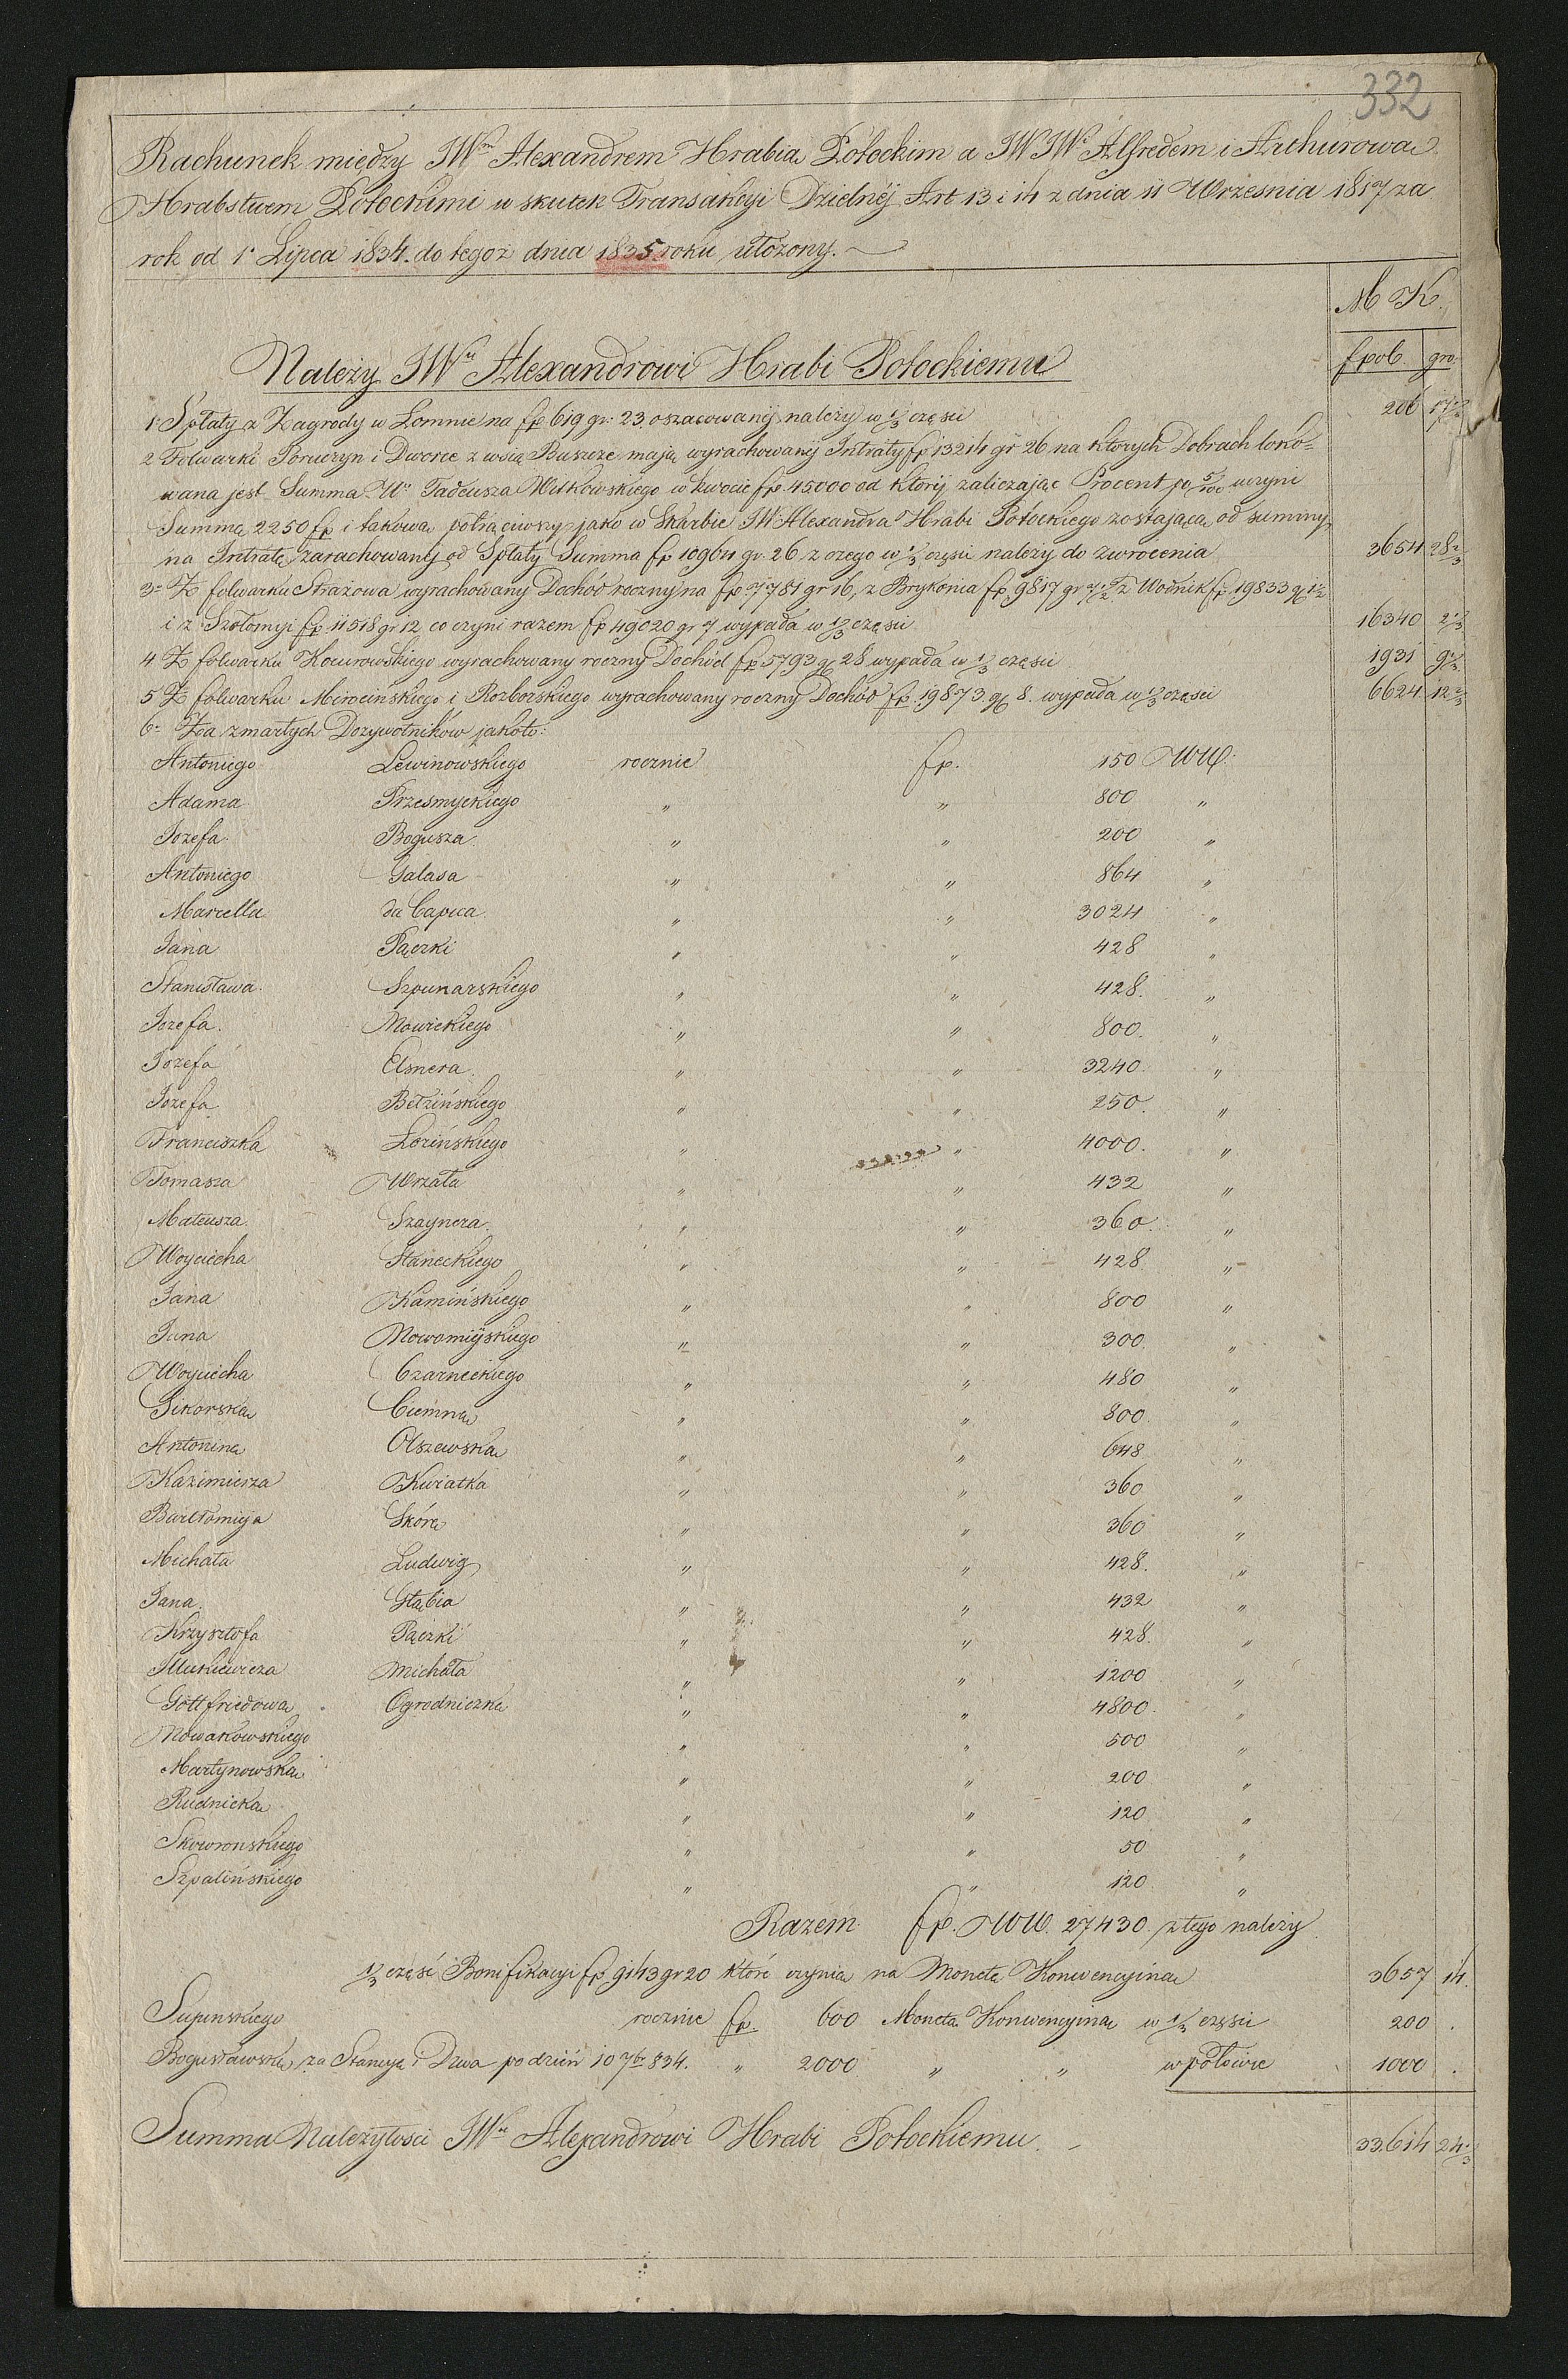 332
Rachunek między JWm Alexandrem Hrabią Potockim a JWJWi Alfredem i Arthurową
Hrabstwem Potockimi w skutek Transakcyi Dzielnéj Art 13 i 14 z dnia 11 Września 1817 za
rok od 1o Lipca 1834. do tegoż dnia 1835 roku ułożony.
M K.
fpol gro.
Należy JWu Alexandrowi Hrabi Potockiemu
1o Spłaty z Zagrody w Łomnie na fp 619 gr. 23, oszacowanij należy w 1/3 części 206 17 2/3
2 Folwarki Poruczyn i Dworce z wsią Buszcze mają wyrachowanij Intraty fp 13214 gr 26 na ktorych Dobrach loko-
wana jest Summa Wo Tadeusza Witkowskiego w kwocie fp. 45000 od ktorij zaliczając Procent po 5/100 uczyni
Summę 2250 fp i takową potrąciwszy jako w Skarbie JW Alexandra Hrabi Potockiego zostającą od summy
na Intratę zarachowanej od Spłaty Summa fp 10964 gr. 26 z czego w 1/3 części należy do zwrocenia 3654 28 2/3
3o Z folwarku Strażowa wyrachowany Dochód roczny na fp 7781 gr 16, z Brykonia fp 9817 gr 7 1/2 z Wodnik fp. 19833 gr 1 1/2
i z Szołomyi fp 11518 gr 12 co czyni razem fp 49020 gr 7 wypada w 1/3 części 16340 2 1/3
4 Z folwarku Kocurowskiego wyrachowany roczny Dochód fp 5793 gr 28 wypada w 1/3 części 1931 9 1/3
5 Z folwarku Mirocińskiego i Rozborskiego wyrachowany roczny Dochód fp. 19873 gr 8. wypada w 1/3 części 6624 12 2/3
6o Za zmarłych Dozywotników jakoto:
Antoniego Lewinowskiego rocznie fp. 150 WW.
Adama Przesmyckiego " " 800 "
Jozefa Bogusza " " 200 "
Antoniego Galasa " " 864 "
Marcella da Capua " " 3024 "
Jana Pączki " " 428 "
Stanisława Szpunarskiego " " 428. "
Jozefa. Nowickiego " " 800. "
Jozefa Elsnera " " 3240. "
Jozefa Bełzińskiego " " 250. "
Franciszka Łozińskiego " " 4000. "
Tomasza Wrzała " " 432 "
Mateusza Szaynera " " 360. "
Woyciecha Staneckiego " " 428 "
Jana Kamińskiego " " 800 "
Jana Nowomiyskiego " " 300. "
Woyciecha Czarneckiego " " 480 "
Sikorska Ciemna " " 800. "
Antonina Olszewska " " 648 "
Kazimierza Kwiatka " " 360 "
Bartłomieja Skóra " " 360 "
Michała Ludwig " " 428. "
Jana. Głąbia " " 432 "
Krzysztofa Pączki " " 428. "
Illukiewicza Michała " " 1200 "
Gottfriedowa Ogrodniczka " " 4800. "
Nowakowskiego " " 500 "
Martynowska " " 200 "
Rudnicka " " 120 "
Skowronskiego " " 50 "
Szpalińskiego " " 120 "
Razem fp. WW. 27430. z tego należy
1/3 część Bonifikacyi fp 9143 gr 20 które czynią na Monetę Konwencyiną 3657 14.
Supinskiego rocznie fp. 600 Monetą Konwencyiną w 1/3 części 200 .
Bogusławska za Stancyę i Drwa po dzień 10 7br 834. " 2000 " " w połowie 1000 .
Summa Należytości JWu Alexandrowi Hrabi Potockiemu. 33.614 24 2/3